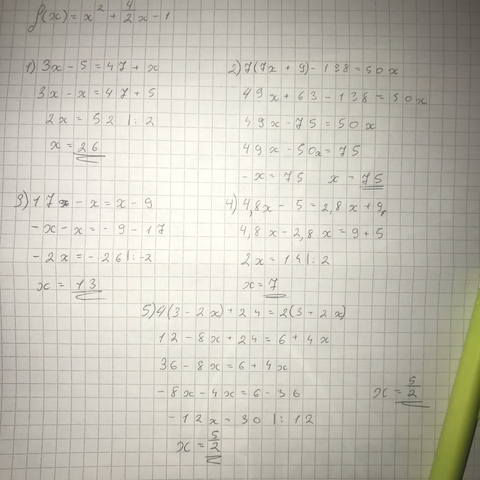 f(x) = x² + 4/2 x - 1
1) 3x - 5 = 47 + x
3x - x = 47 + 5
2x = 52 |: 2
x = 26
2) 7(7x + 9) - 138 = 50x
49x + 63 - 138 = 50x
49x - 75 = 50x
49x - 50x = 75
- x = 75 x = 75
3) 17 - x = x - 9
- x - x = - 9 - 17
- 2x = - 26 |: -2
x = 13
4) 4,8x - 5 = 2,8x + 9
4,8x - 2,8x = 9 + 5
2x = 14 |: 2
x = 7
5) 4(3 - 2x) + 24 = 2(3 + 2x)
12 - 8x + 24 = 6 + 4x
36 - 8x = 6 + 4x
- 8x - 4x = 6 - 36
- 12x - 30 |: 12
x = 5/2
x = 5/2